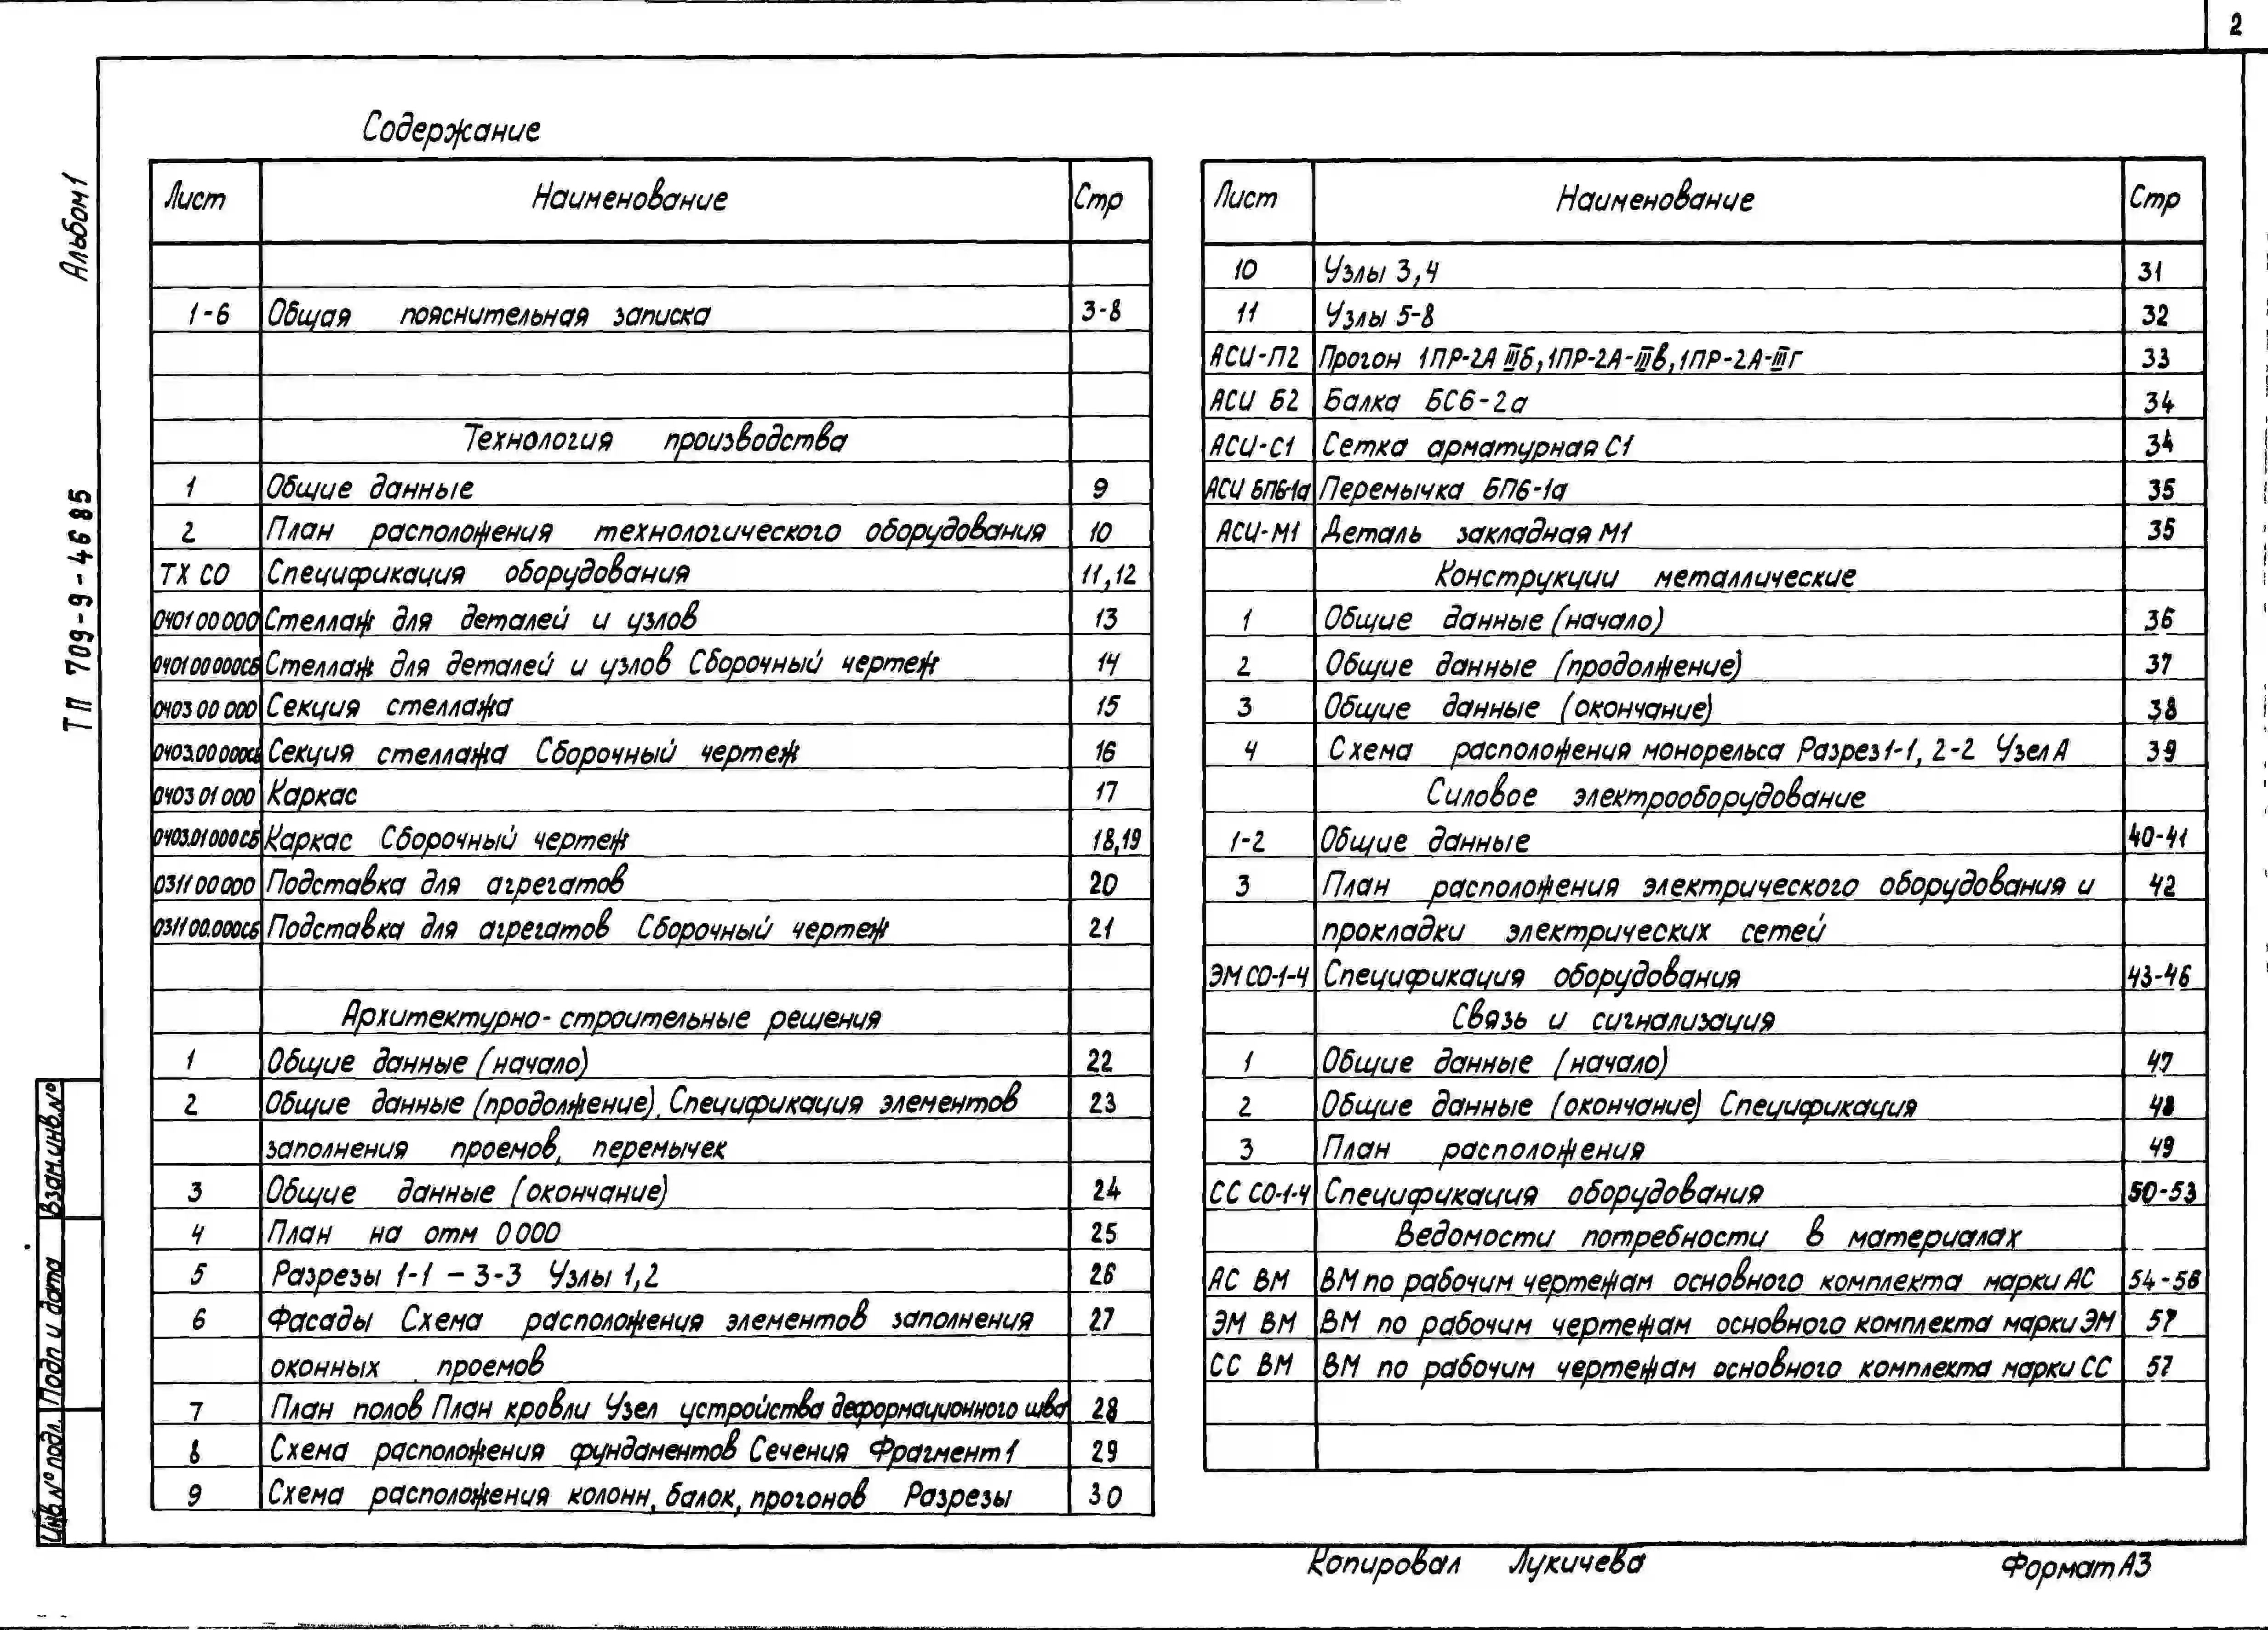 2
Альбом 1
ТП 709-9-46 85
Содержание
Лист Наименование Стр
1-6 Общая пояснительная записка 3-8
Технология производства
1 Общие данные 9
2 План расположения технологического оборудования 10
ТХ СО Спецификация оборудования 11,12
0401 00 000 Стеллаж для деталей и узлов 13
0401 00 000СБ Стеллаж для деталей и узлов Сборочный чертеж 14
0403 00 000 Секция стеллажа 15
0403.00 000СБ Секция стеллажа Сборочный чертеж 16
0403 01 000 Каркас 17
0403.01 000СБ Каркас Сборочный чертеж 18,19
0311 00 000 Подставка для агрегатов 20
0311 00.000СБ Подставка для агрегатов Сборочный чертеж 21
Архитектурно-строительные решения
1 Общие данные (начало) 22
2 Общие данные (продолжение). Спецификация элементов 23
заполнения проемов, перемычек
3 Общие данные (окончание) 24
4 План на отм 0 000 25
5 Разрезы 1-1 – 3-3 Узлы 1,2 26
6 Фасады Схема расположения элементов заполнения 27
оконных проемов
7 План полов План кровли Узел устройства деформационного шва 28
8 Схема расположения фундаментов Сечения Фрагмент 1 29
9 Схема расположения колонн, балок, прогонов Разрезы 30
Лист Наименование Стр
10 Узлы 3,4 31
11 Узлы 5-8 32
АСИ-П2 Прогон 1ПР-2А IIIб, 1ПР-2А-IIIв, 1ПР-2А-IIIг 33
АСИ Б2 Балка БС6-2а 34
АСИ-С1 Сетка арматурная С1 34
АСИ БП6-1а Перемычка БП6-1а 35
АСИ-М1 Деталь закладная М1 35
Конструкции металлические
1 Общие данные (начало) 36
2 Общие данные (продолжение) 37
3 Общие данные (окончание) 38
4 Схема расположения монорельса Разрез 1-1, 2-2 Узел А 39
Силовое электрооборудование
1-2 Общие данные 40-41
3 План расположения электрического оборудования и 42
прокладки электрических сетей
ЭМ СО-1-4 Спецификация оборудования 43-46
Связь и сигнализация
1 Общие данные (начало) 47
2 Общие данные (окончание) Спецификация 48
3 План расположения 49
СС СО-1-4 Спецификация оборудования 50-53
Ведомости потребности в материалах
АС ВМ ВМ по рабочим чертежам основного комплекта марки АС 54-56
ЭМ ВМ ВМ по рабочим чертежам основного комплекта марки ЭМ 57
СС ВМ ВМ по рабочим чертежам основного комплекта марки СС 57
Взам.инв.№
Подп и дата
Инв.№ подл.
Копировал Лукичева
Формат А3